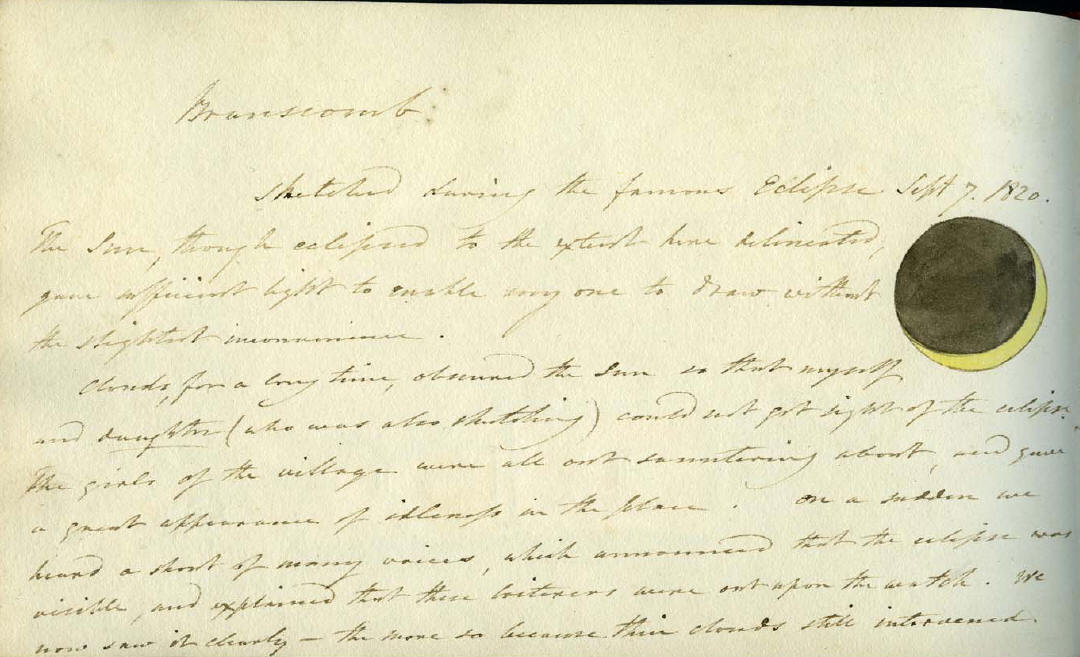 Branscomb:
sketched during the famous Eclipse Sept 7. 1820.
The Sun, though eclipsed to the extent here delineated,
gave sufficient light to enable any one to draw without
the slightest inconvenience.
Clouds, for a long time, obscured the Sun so that myself
and daughter (who was also sketching) could not get sight of the eclipse.
The girls of the village were all out sauntering about, and gave
a great appearance of idleness in the place. On a sudden we
heard a shout of many voices, which announced that the eclipse was
visible, and explained that these loiterers were out upon the watch. We
now saw it clearly – the more so because thin clouds still intervened.